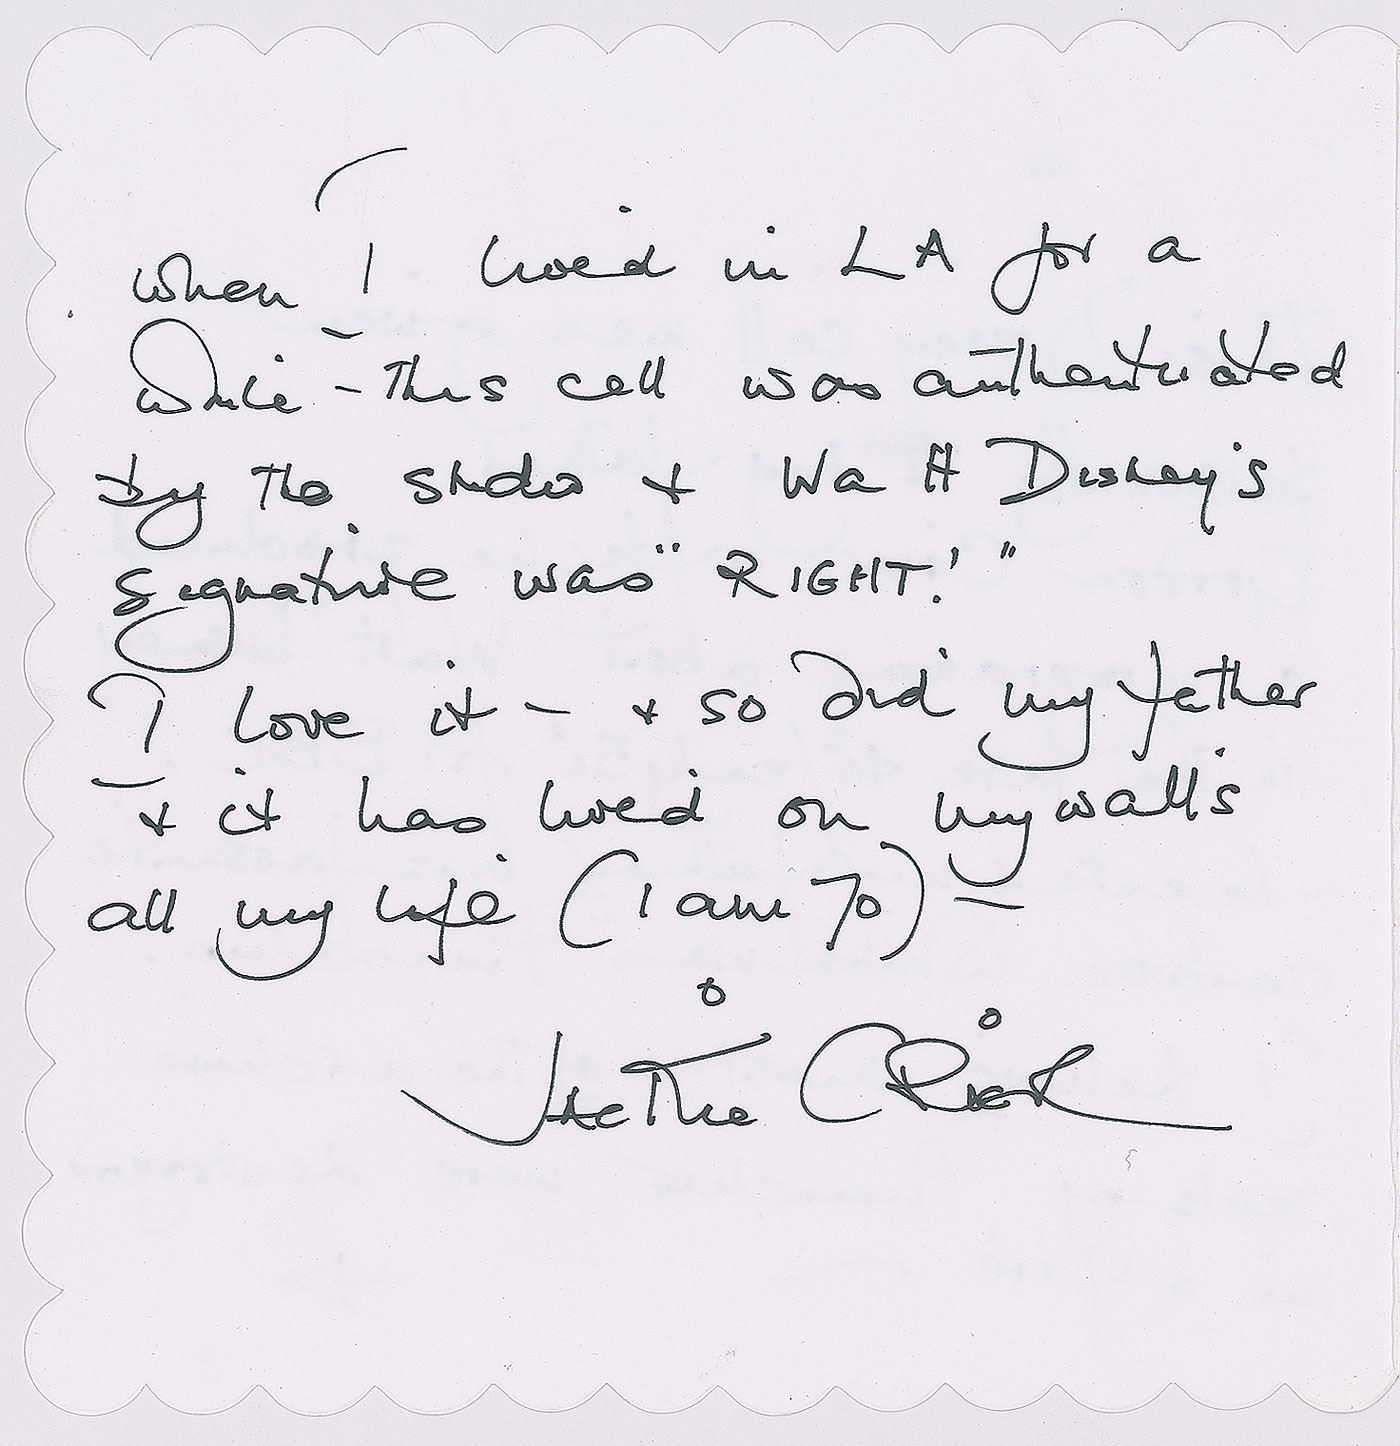 When I lived in LA for a
while - this cell was authenticated
by the studio + Walt Disney's
signature was "RIGHT!"
I love it - + so did my father
+ it has lived on my walls
all my life (I am 70) -